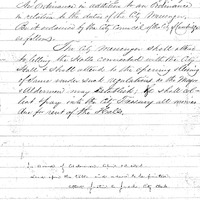 An Ordinance in addition to an Ordinance
in relation to the duties of the City Messenger.
Be it ordained by the City Council of the City of Cambridge
as follows.
The City Messenger shall attend
to letting the Halls connected with the City
Hall & shall attend to the opening & closing
of same under such regulations as the Mayor &
Aldermen may establish; & shall col-
lect & pay into the City Treasury all monies
due for rent of the Halls.
In Board of Aldermen April
City Clerk